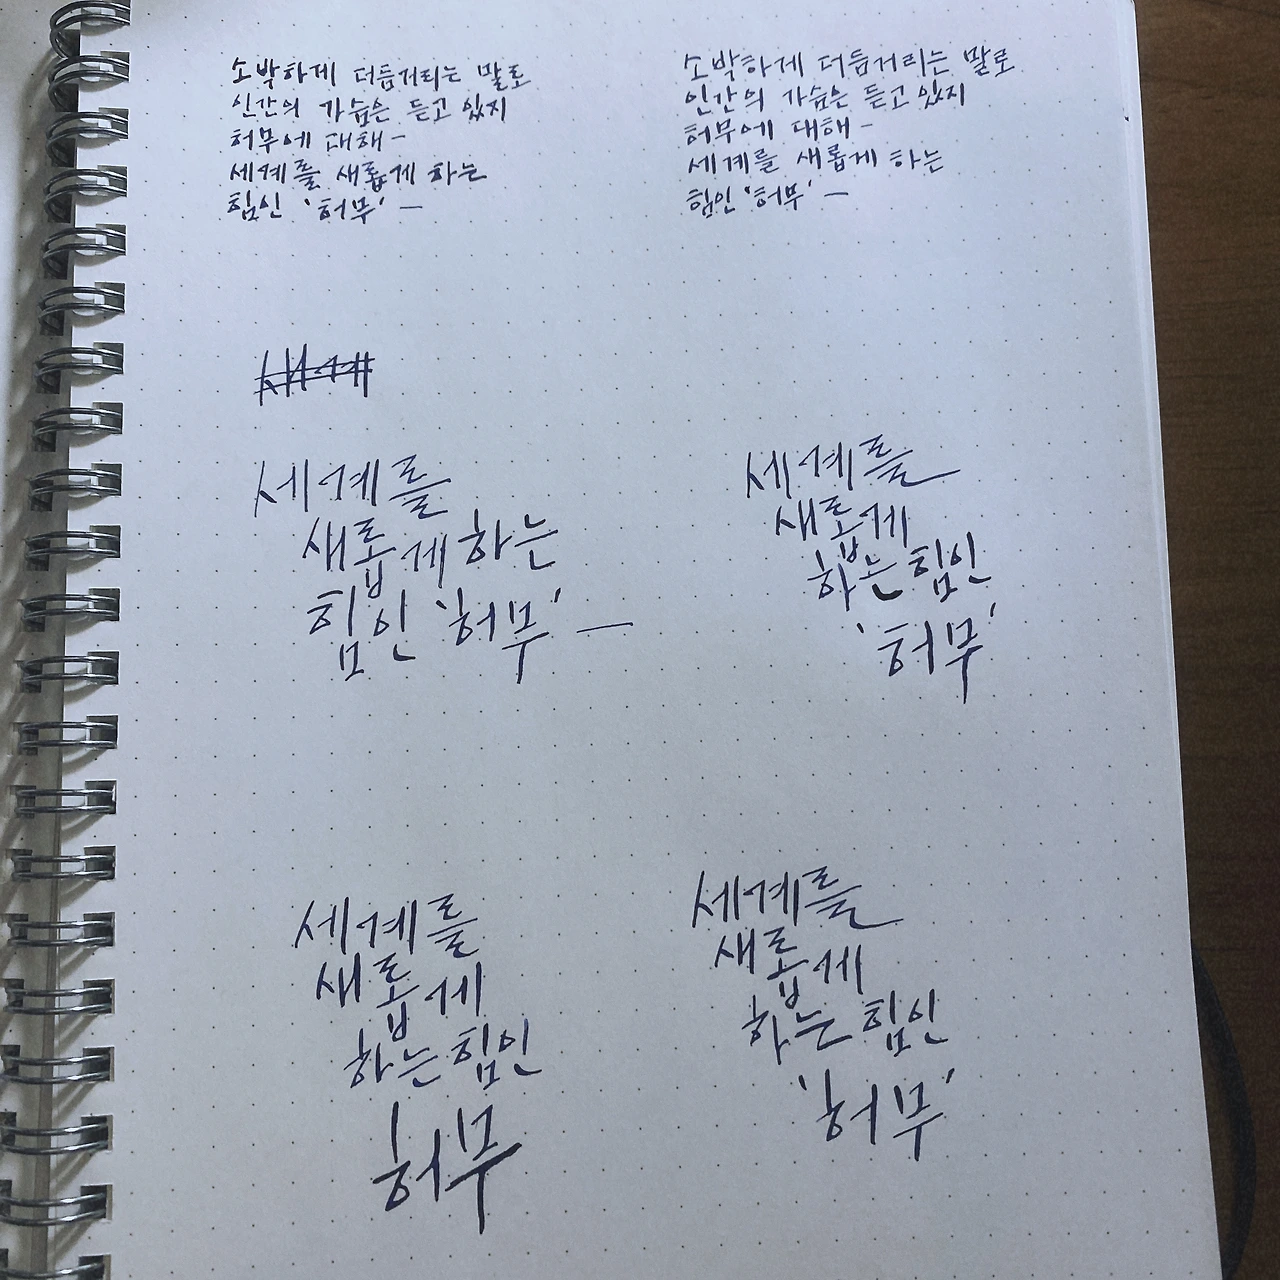 소박하게 더듬거리는 말로
인간의 가슴은 듣고 있지
허무에 대해 -
세계를 새롭게 하는
힘인 '허무' —
소박하게 더듬거리는 말로
인간의 가슴은 듣고 있지
허무에 대해 -
세계를 새롭게 하는
힘인 '허무' —
세계
세계를
새롭게 하는
힘인 '허무' —
세계를
새롭게
하는 힘인
'허무'
세계를
새롭게
하는 힘인
허무
세계를
새롭게
하는 힘인
'허무'